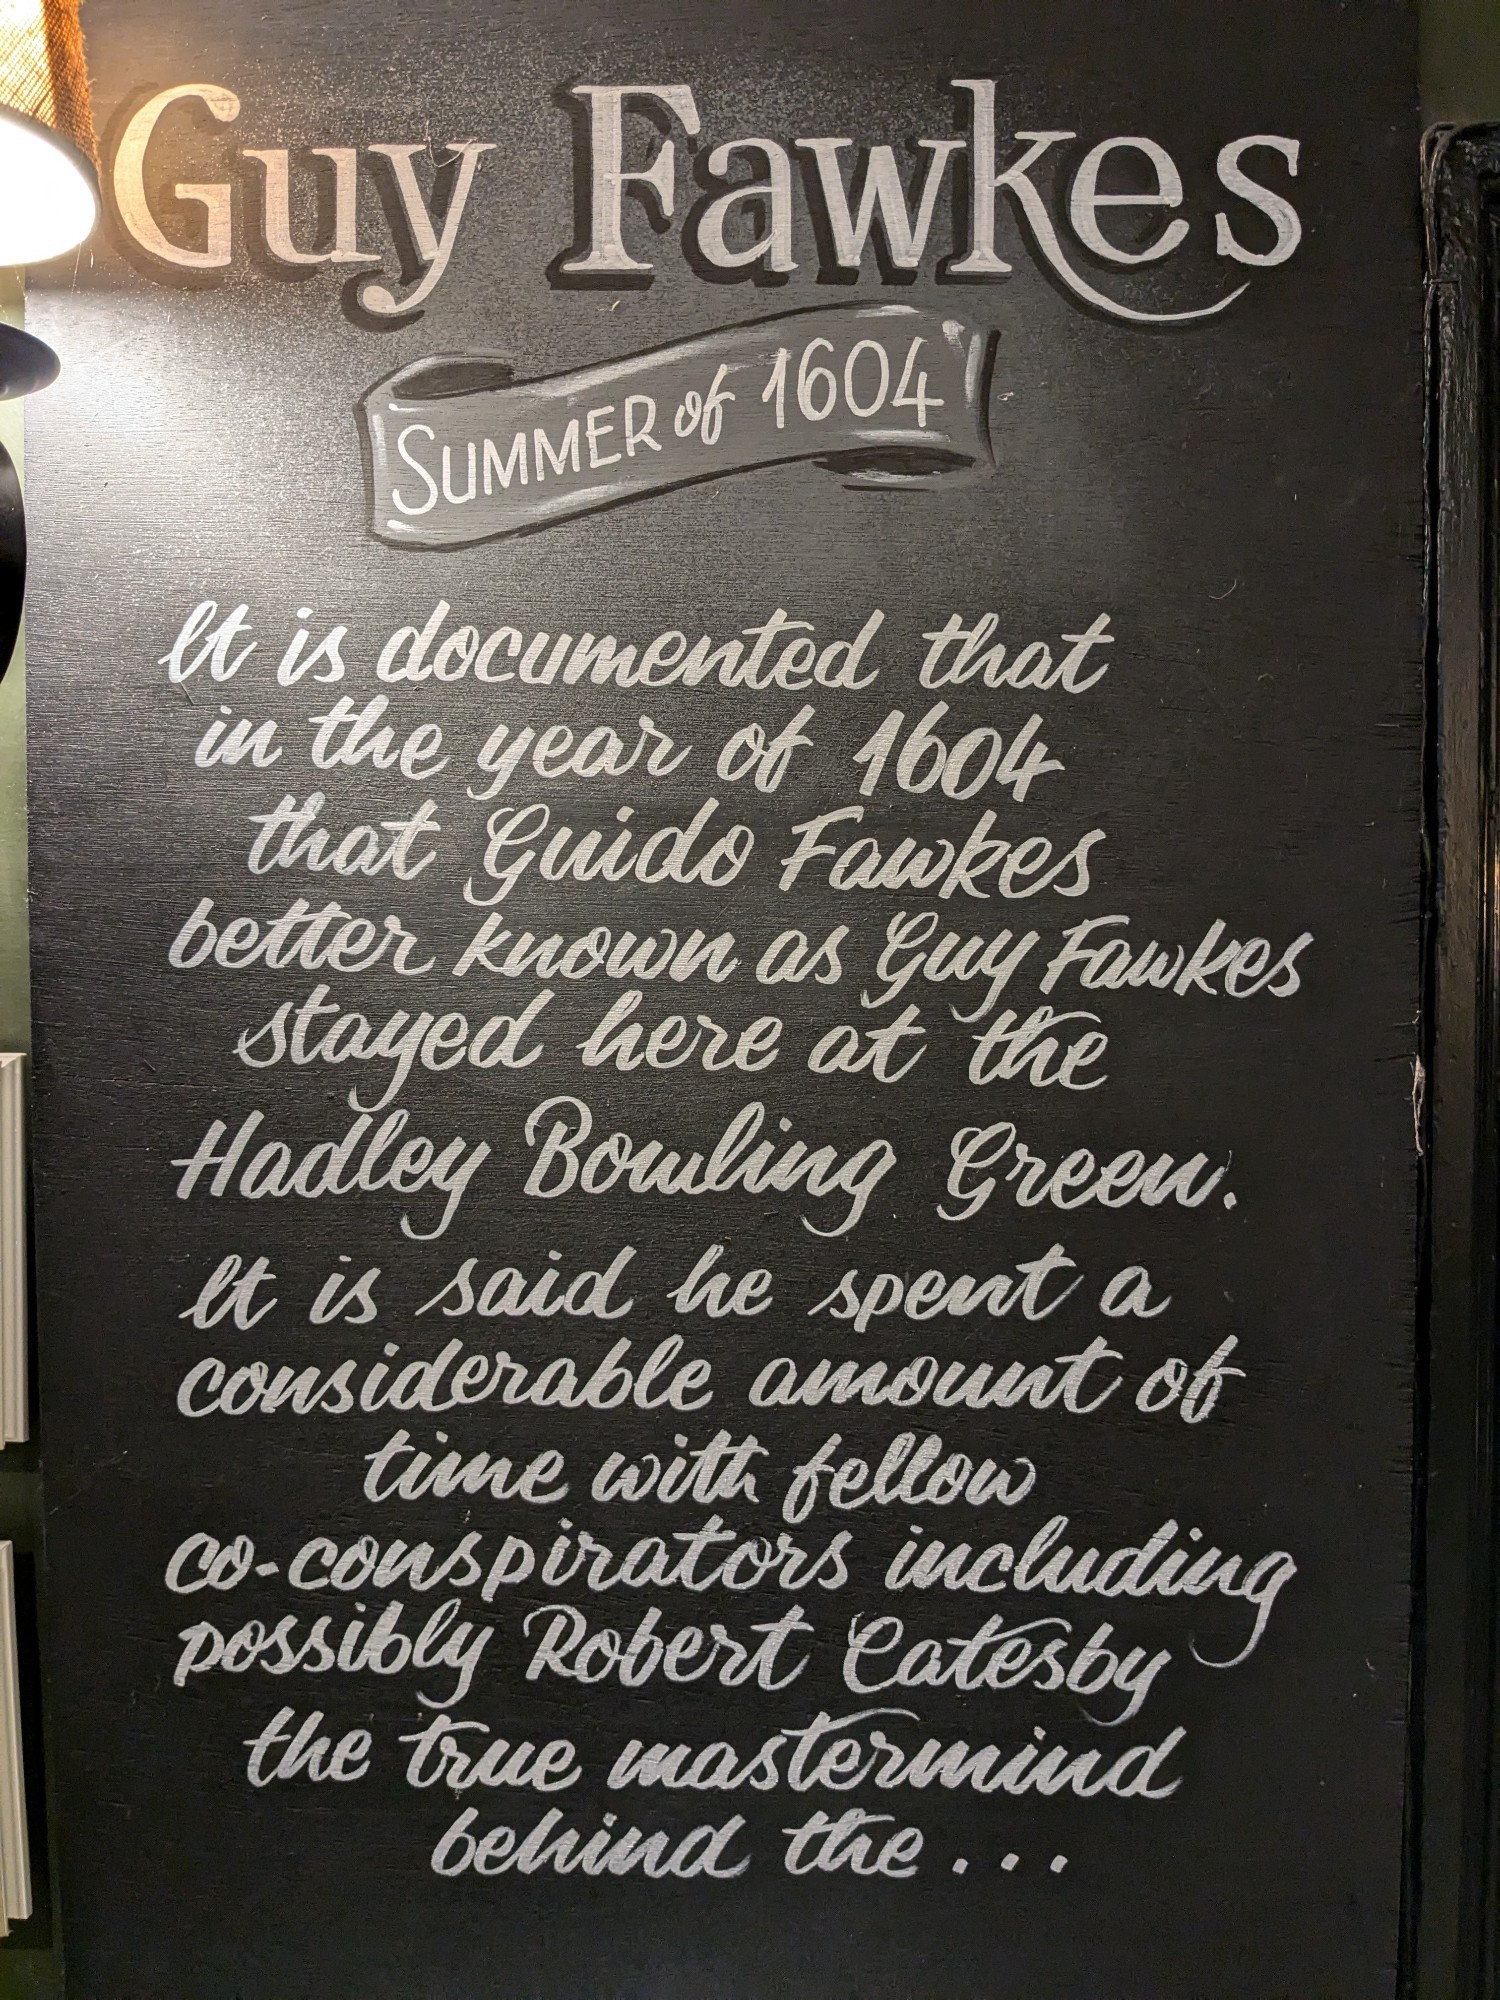 Guy Fawkes
SUMMER of 1604
It is documented that
in the year of 1604
that Guido Fawkes
better known as Guy Fawkes
stayed here at the
Hadley Bowling Green.
It is said he spent a
considerable amount of
time with fellow
co-conspirators including
possibly Robert Catesby
the true mastermind
behind the...